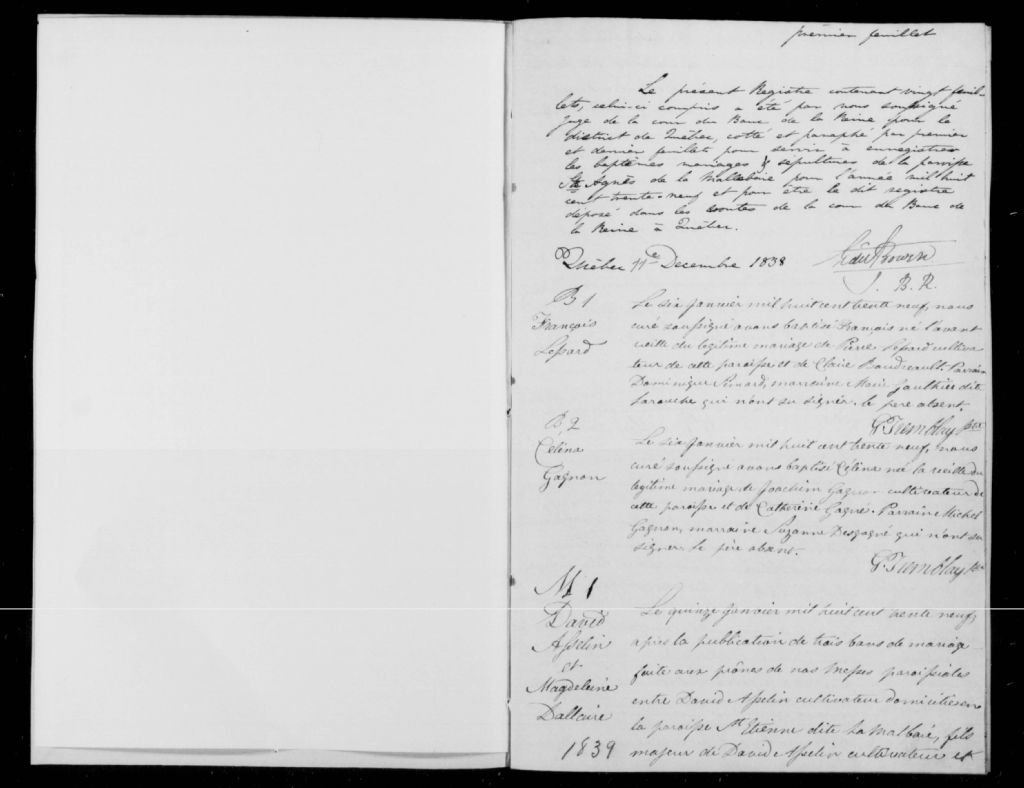 premier feuillet
Le présent Registre contenant vingt feuil-
lets, celui-ci compris a été par nous soussigné
Juge de la cour du Banc de la Reine pour le
district de Québec, cotté et paraphé par premier
et dernier feuillet pour servir à enregistrer
les baptêmes mariages & sépultures de la paroisse
Ste Agnès de la Malbaie pour l'année mil huit
cent trente-neuf et pour être le dit registre
déposé dans les voutes de la cour du Banc de
la Reine à Québec.
Québec 11e Decembre 1838
J. B. R.
B 1
François
Lessard
Le six janvier mil huit cent trente neuf, nous
curé soussigné avons baptisé François né l'avant
veille du légitime mariage de Pierre Lessard cultiva
teur de cette paroisse et de Claire Boudreault. Parrain
Dominique Simard, marraine Marie Gauthier dite
Larouche qui n'ont su signer. le père absent.
G. Tremblay Ptre
B. 2
Célina
Gagnon
Le six janvier mil huit cent trente neuf, nous
curé soussigné avons baptisé Célina née la veille du
légitime mariage de Joachim Gagnon cultivateur de
cette paroisse et de Catherine Gagné. Parraine Michel
Gagnon, marraine Suzanne Desgagné qui n'ont su
signer. le père absent.
G. Tremblay Ptre
M 1
David
Asselin
et
Magdeleine
Dallaire
1839
Le quinze janvier mil huit cent trente neuf,
après la publication de trois bans de mariage
faite aux prônes de nos messes paroissiales
entre David Asselin cultivateur domicilié en
la paroisse St Etienne dite La Malbaie, fils
majeur de David Asselin cultivateur et